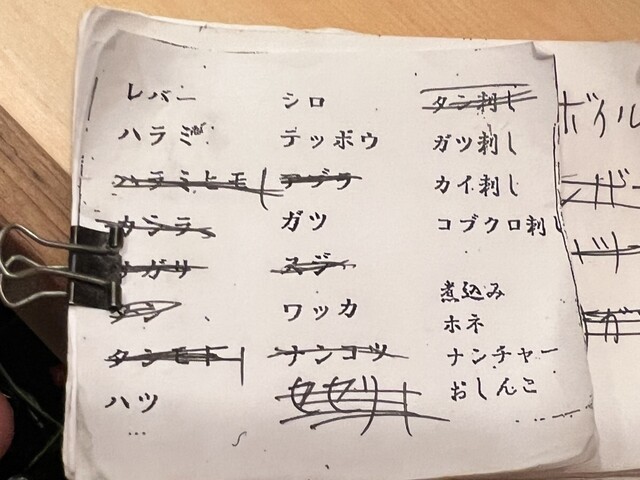 レバー
ハラミ
ハラミヒモ
カシラ
サガリ
タン
タンモト
ハツ
シロ
テッポウ
アブラ
ガツ
スジ
ワッカ
ナンコツ
セセリ
タン刺し
ガツ刺し
カイ刺し
コブクロ刺し
煮込み
ホネ
ナンチャー
おしんこ
ボイル